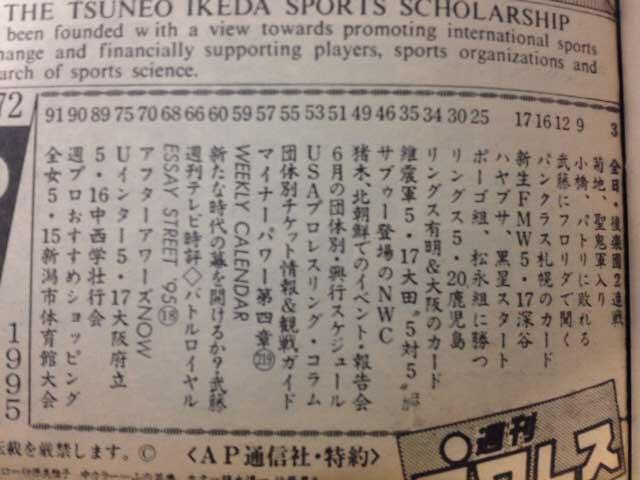 THE TSUNEO IKEDA SPORTS SCHOLARSHIP
been founded with a view towards promoting international sports
change and financially supporting players, sports organizations and
arch of sports science.
72
3 全日・後楽園2連戦
菊地、聖鬼軍入り
9 小橋、パトリに敗れる
12 武藤にフロリダで聞く
16 パンクラス札幌のカード
17 新生FMW5・17深谷
ハヤブサ、黒星スタート
25 ポーゴ組、松永組に勝つ
30 リングス5・20鹿児島
34 リングス有明&大阪のカード
35 維震軍5・17大田“5対5”
46 サブゥー登場のNWC
49 猪木、北朝鮮でのイベント・報告会
51 6月の団体別・興行スケジュール
53 USAプロレスリング・コラム
55 団体別チケット情報&観戦ガイド
57 マイナーパワー第四章
59 WEEKLY CALENDAR
60 新たな時代の幕を開けるか?武藤
66 週刊テレビ時評◇バトルロイヤル
68 ESSAY STREET '95⑱
70 アフターアワーズNOW
75 Uインター5・17大阪府立
89 5・16中西学壮行会
90 週プロおすすめショッピング
91 全女5・15新潟市体育館大会
1995
転載を厳禁します。©
〈AP通信社・特約〉
週刊
プロレス